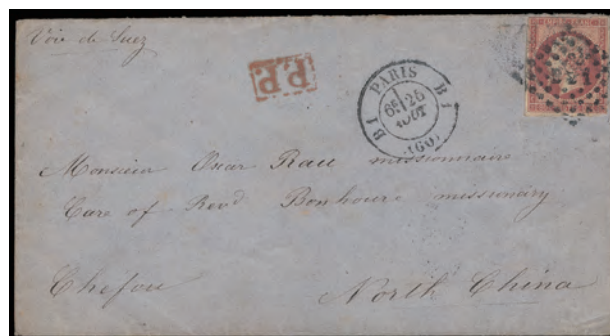 Voie de Suez
EMPIRE FRANC
P.P.
PARIS
B1 B1
6E 25
AOUT
(60)
Monsieur Oscar Rau missionnaire
Care of Revd Bonhoure missionary
Chefou North China